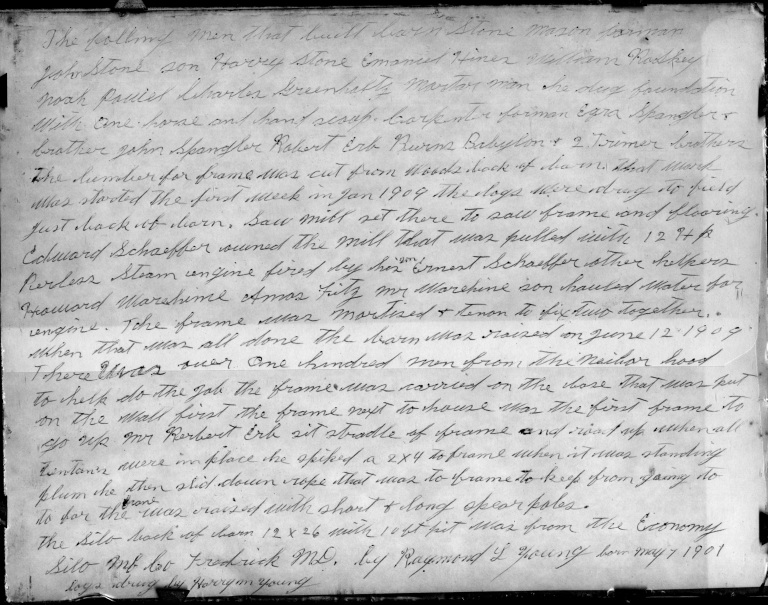 The folling men that built barn Stone mason forman
John Stone son Harvey Stone Emanuel Hiner William Rodkey
Noah Powel Charles Greenholtz mortar man he dug foundation
with one horse and hand scoop. Carpenter forman Ezra Spangler &
brother John Spangler Robert Erb Babylon & 2 Trimer brothers
The lumber for frame was cut from woods back of barn. that work
was started the first week in Jan 1909 the logs were drug to field
just back of barn. Saw mill set there to saw frame and flooring.
Edward Schaeffer owned the mill that was pulled with 12 H P
Peerless Steam engine fired by his son Ernest Schaeffer other helpers
Howard Marshime Amos Fitz mr Marshime son hauled water for
engine. The frame was mortised & tenon to fix two together.
when that was all done the barn was raised on June 12 1909
There was over one hundred men from the neibor hood
to help do the job the frame was carried on the base that was put
on the wall first the frame next to house was the first frame to
go up mr Robert Erb sit stradle of frame and road up when all
tentans were in place he spiked a 2x4 to frame when it was standing
plum he then slid down rope that was to frame to keep from going to
to far the frame was raised with short & long spear poles.
the Silo back of barn 12 x 26 with 10 ft pit was from the Economy
Silo Mf Co Fredrick MD. by Raymond L Young born May 7 1901
Logs drug by Harry M Young